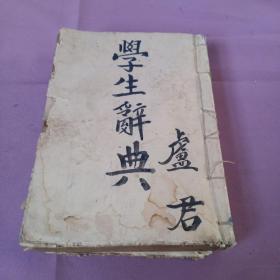 學生辭典
盧君